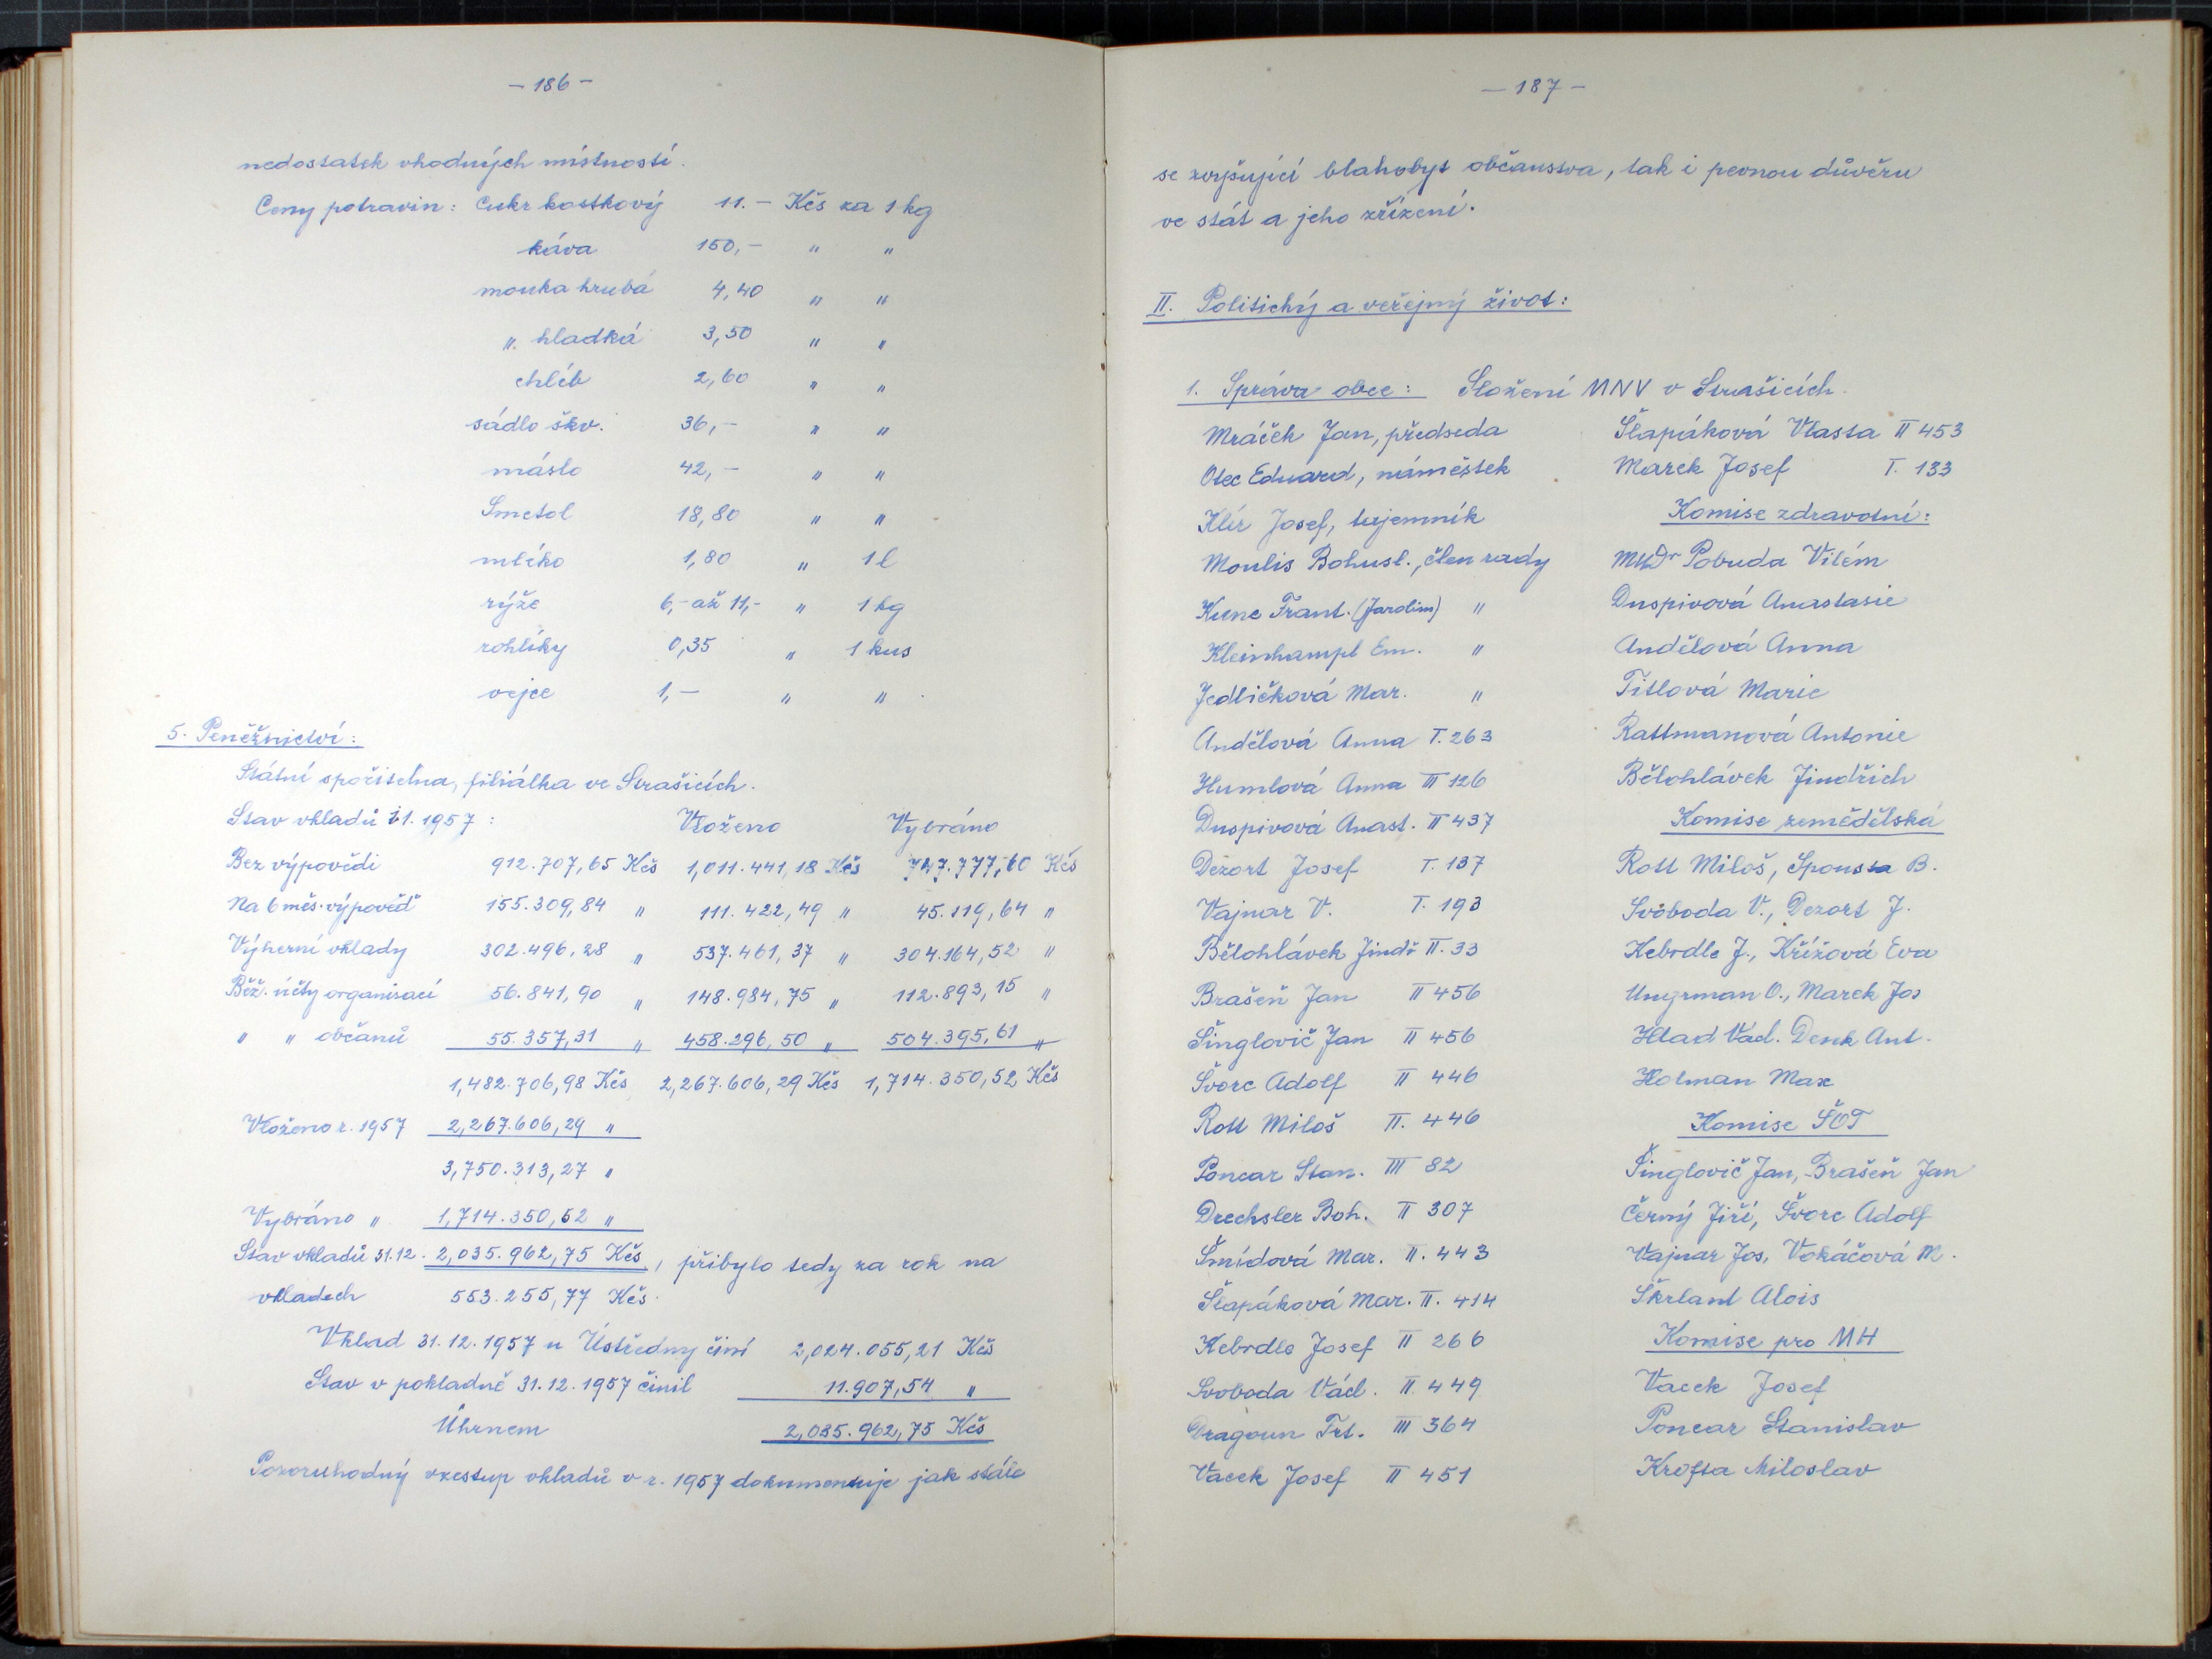 – 186 –
nedostatek vhodných místností.
Ceny potravin: Cukr kostkový 11.– Kčs za 1 kg
káva 150,– " "
mouka hrubá 4,40 " "
". hladká 3,50 " "
chléb 2,60 " "
sádlo škv. 36,– " "
máslo 42,– " "
Smetol 18,80 " "
mléko 1,80 " 1 l
rýže 6,– až 11,– " 1 kg
rohlíky 0,35 " 1 kus
vejce 1,– " "
5. Peněžnictví:
Státní spořitelna, filiálka ve Strašicích.
Stav vkladů 1.1. 1957: Vloženo Vybráno
Bez výpovědi 912.707,65 Kčs 1,011.441,18 Kčs 747.777,60 Kčs
Na 6 měs. výpověď 155.309,84 " 111.422,49 " 45.119,64 "
Výherní vklady 302.496,28 " 537.461,37 " 304.164,52 "
Běž. účty organisací 56.841,90 " 148.984,75 " 112.893,15 "
" " občanů 55.357,31 " 458.296,50 " 504.395,61 "
1,482.706,98 Kčs 2,267.606,29 Kčs 1,714.350,52 Kčs
Vloženo r. 1957 2,267.606,29 "
3,750.313,27 "
Vybráno " 1,714.350,52 "
Stav vkladů 31.12. 2,035.962,75 Kčs, přibylo tedy za rok na
vkladech 553.255,77 Kčs.
Vklad 31.12.1957 u Ústředny činí 2,024.055,21 Kčs
Stav v pokladně 31.12.1957 činil 11.907,54 "
Úhrnem 2,035.962,75 Kčs
Pozoruhodný vzestup vkladů v r. 1957 dokumentuje jak stále
– 187 –
se zvyšující blahobyt občanstva, tak i pevnou důvěru
ve stát a jeho zřízení.
II. Politický a veřejný život:
1. Správa obce: Složení MNV v Strašicích.
Mráček Jan, předseda
Otec Eduard, náměstek
Klír Josef, tajemník
Moulis Bohusl., člen rady
Kunc Frant. (Jarolím) "
Kleinhampl Em. "
Jedličková Mar. "
Andělová Anna I. 263
Humlová Anna III 126
Duspivová Anast. II 437
Dezort Josef I. 137
Vajnar V. I. 193
Bělohlávek Jindř. II. 33
Brašeň Jan II 456
Šinglovič Jan II 456
Švorc Adolf II 446
Rott Miloš II. 446
Poncar Stan. III 82
Drechsler Boh. II 307
Šmídová Mar. II. 443
Šlapáková Mar. II. 414
Kebrdle Josef II 266
Svoboda Václ. II. 449
Dragoun Frt. III 364
Vacek Josef II 451
Šlapáková Vlasta II 453
Marek Josef I. 133
Komise zdravotní:
MUDr Pobuda Vilém
Duspivová Anastasie
Andělová Anna
Titlová Marie
Rattmanová Antonie
Bělohlávek Jindřich
Komise zemědělská
Rott Miloš, Spousta B.
Svoboda V., Dezort J.
Kebrdle J., Křížová Eva
Ungrman O., Marek Jos
Hlad Václ. Denk Ant.
Holman Max
Komise ŠOT
Šinglovič Jan, Brašeň Jan
Černý Jiří, Švorc Adolf
Vajnar Jos, Vokáčová M.
Škrlant Alois
Komise pro MH
Vacek Josef
Poncar Stanislav
Krofta Miloslav